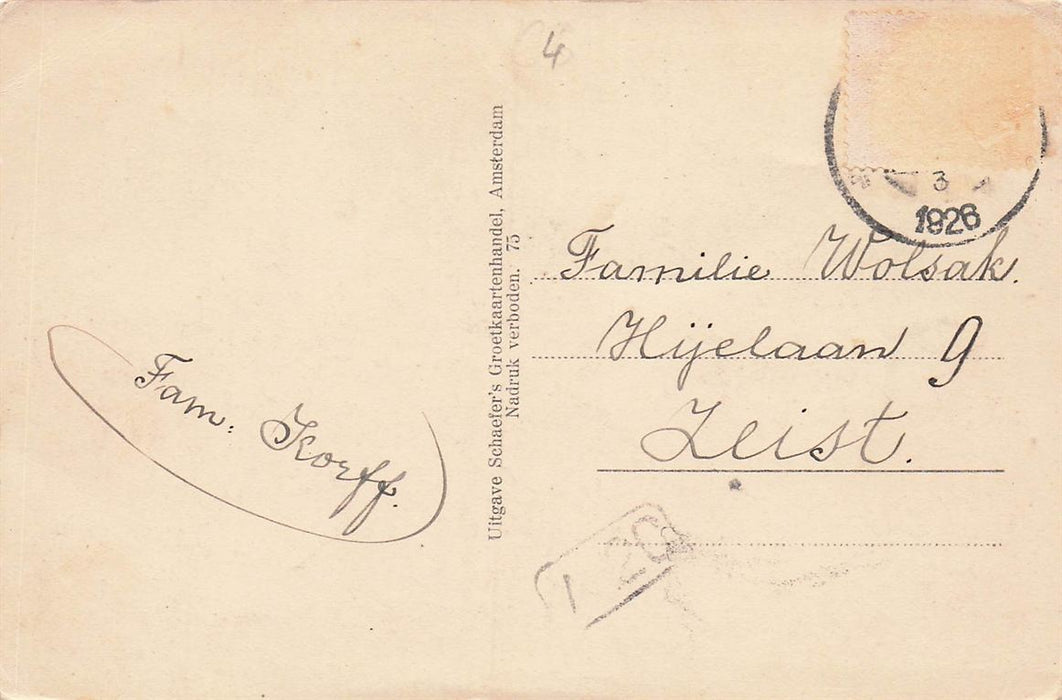 4
3
1926
Familie Wolsak.
Hijelaan 9
Zeist.
Fam. Korff.
Uitgave Schaefer's Groetkaartenhandel, Amsterdam
Nadruk verboden. 75